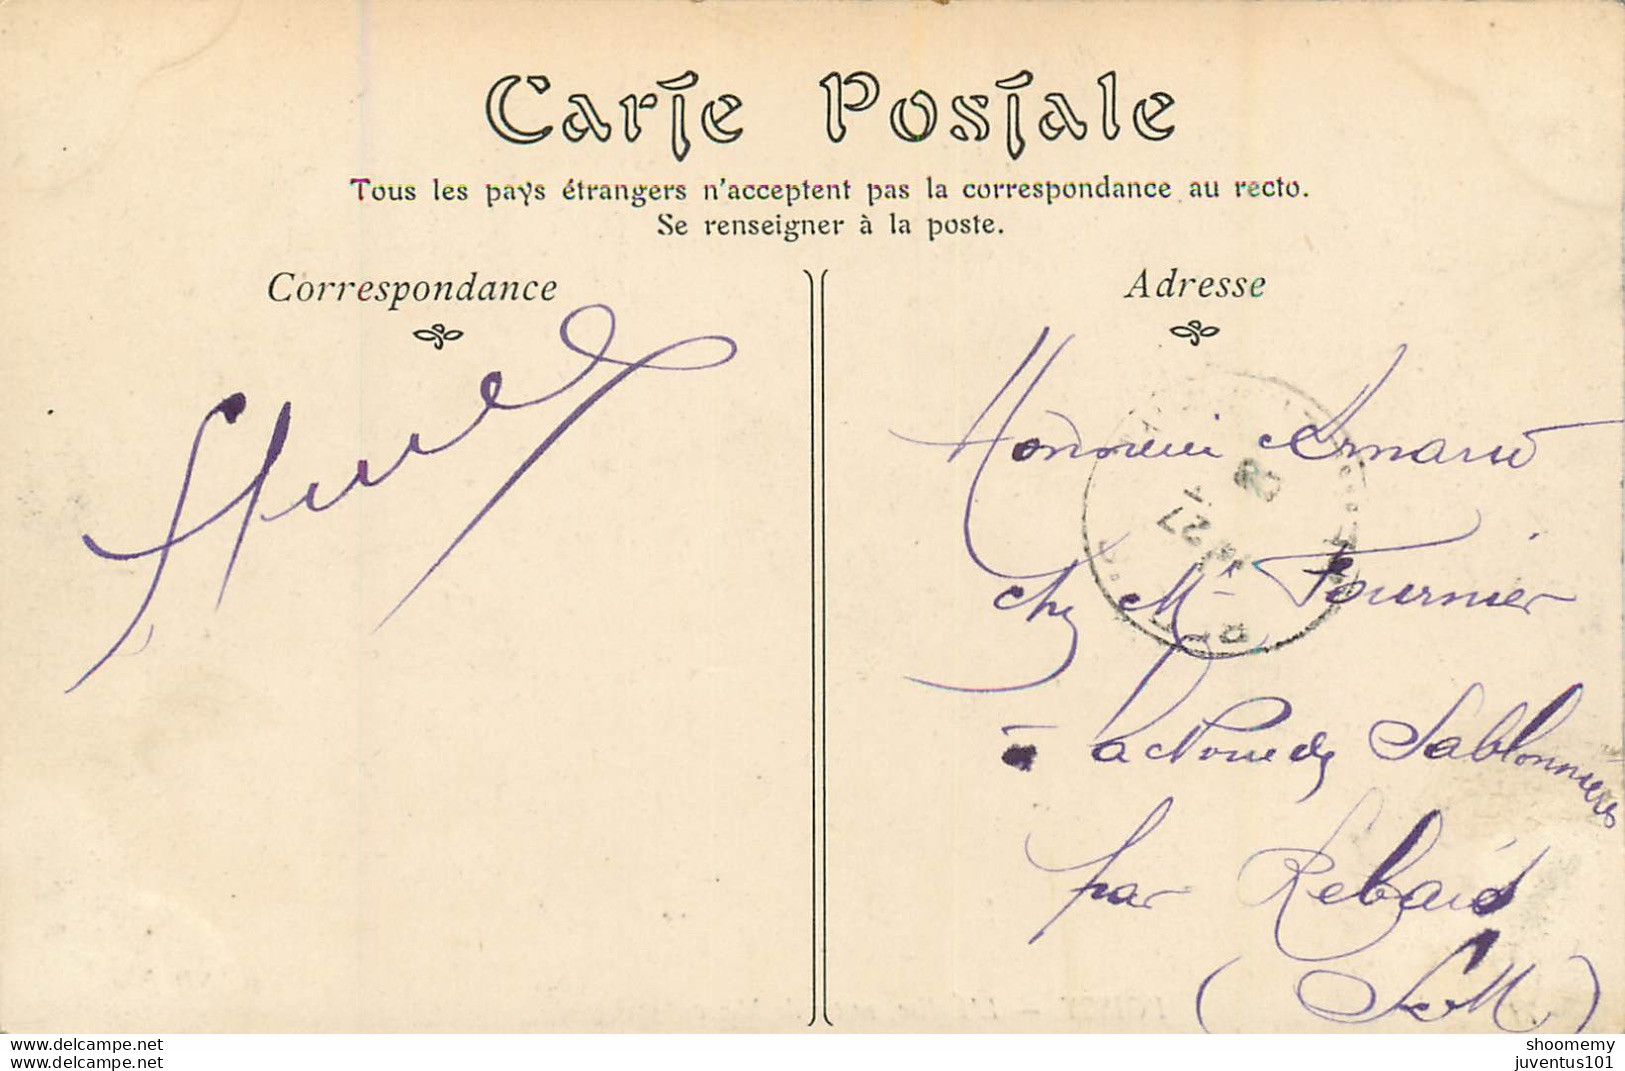 Carte Postale
Tous les pays étrangers n'acceptent pas la correspondance au recto.
Se renseigner à la poste.
Correspondance
Adresse
Monsieur Arnaud
chez Mr Fournier
à la Noue de Sablonnières
par Rebais
(S et M)
27
08
www.delcampe.net
www.delcampe.net
shoomemy
juventus101